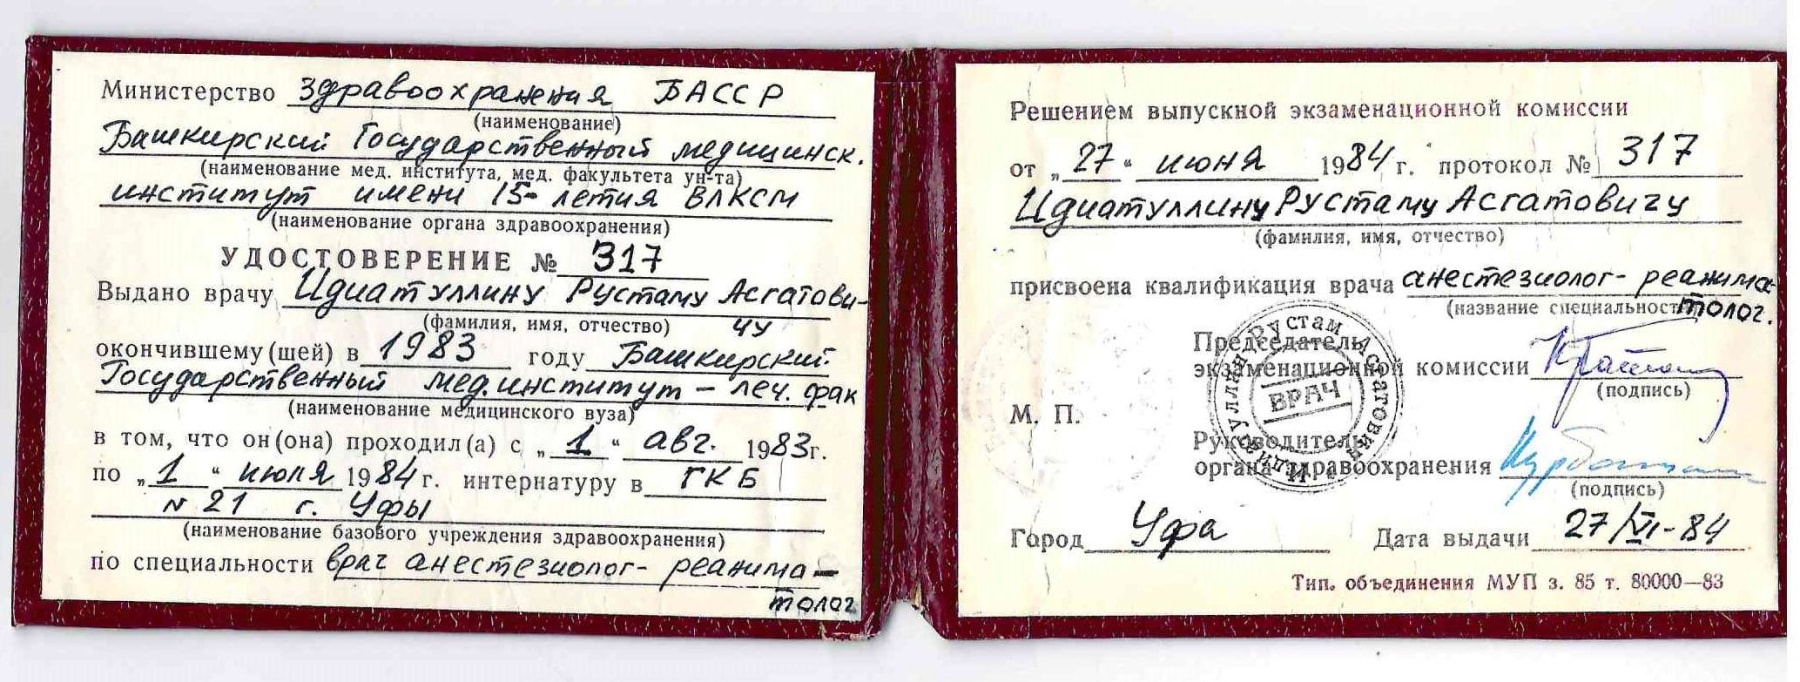 Министерство здравоохранения БАССР
(наименование)
Башкирский Государственный медицинск.
(наименование мед. института, мед. факультета ун-та)
институт имени 15-летия ВЛКСМ
(наименование органа здравоохранения)
УДОСТОВЕРЕНИЕ № 317
Выдано врачу Идиатуллину Рустаму Асгатови-
(фамилия, имя, отчество) чу
окончившему (шей) в 1983 году Башкирский
Государственный мед.институт – леч. фак
(наименование медицинского вуза)
в том, что он(она) проходил(а) с „1“ авг. 1983г.
по „1“ июля 1984г. интернатуру в ГКБ
№ 21 г. Уфы
(наименование базового учреждения здравоохранения)
по специальности врач анестезиолог- реанима-
толог
Решением выпускной экзаменационной комиссии
от „27“ июня 1984г. протокол № 317
Идиатуллину Рустаму Асгатовичу
(фамилия, имя, отчество)
присвоена квалификация врача анестезиолог- реанима-
(название специальности) толог.
Председатель
экзаменационной комиссии
(подпись)
М. П.
Руководитель
органа здравоохранения
(подпись)
Идиатуллин Рустам Асгатович
ВРАЧ
Город Уфа Дата выдачи 27/VI-84
Тип. объединения МУП з. 85 т. 80000—83